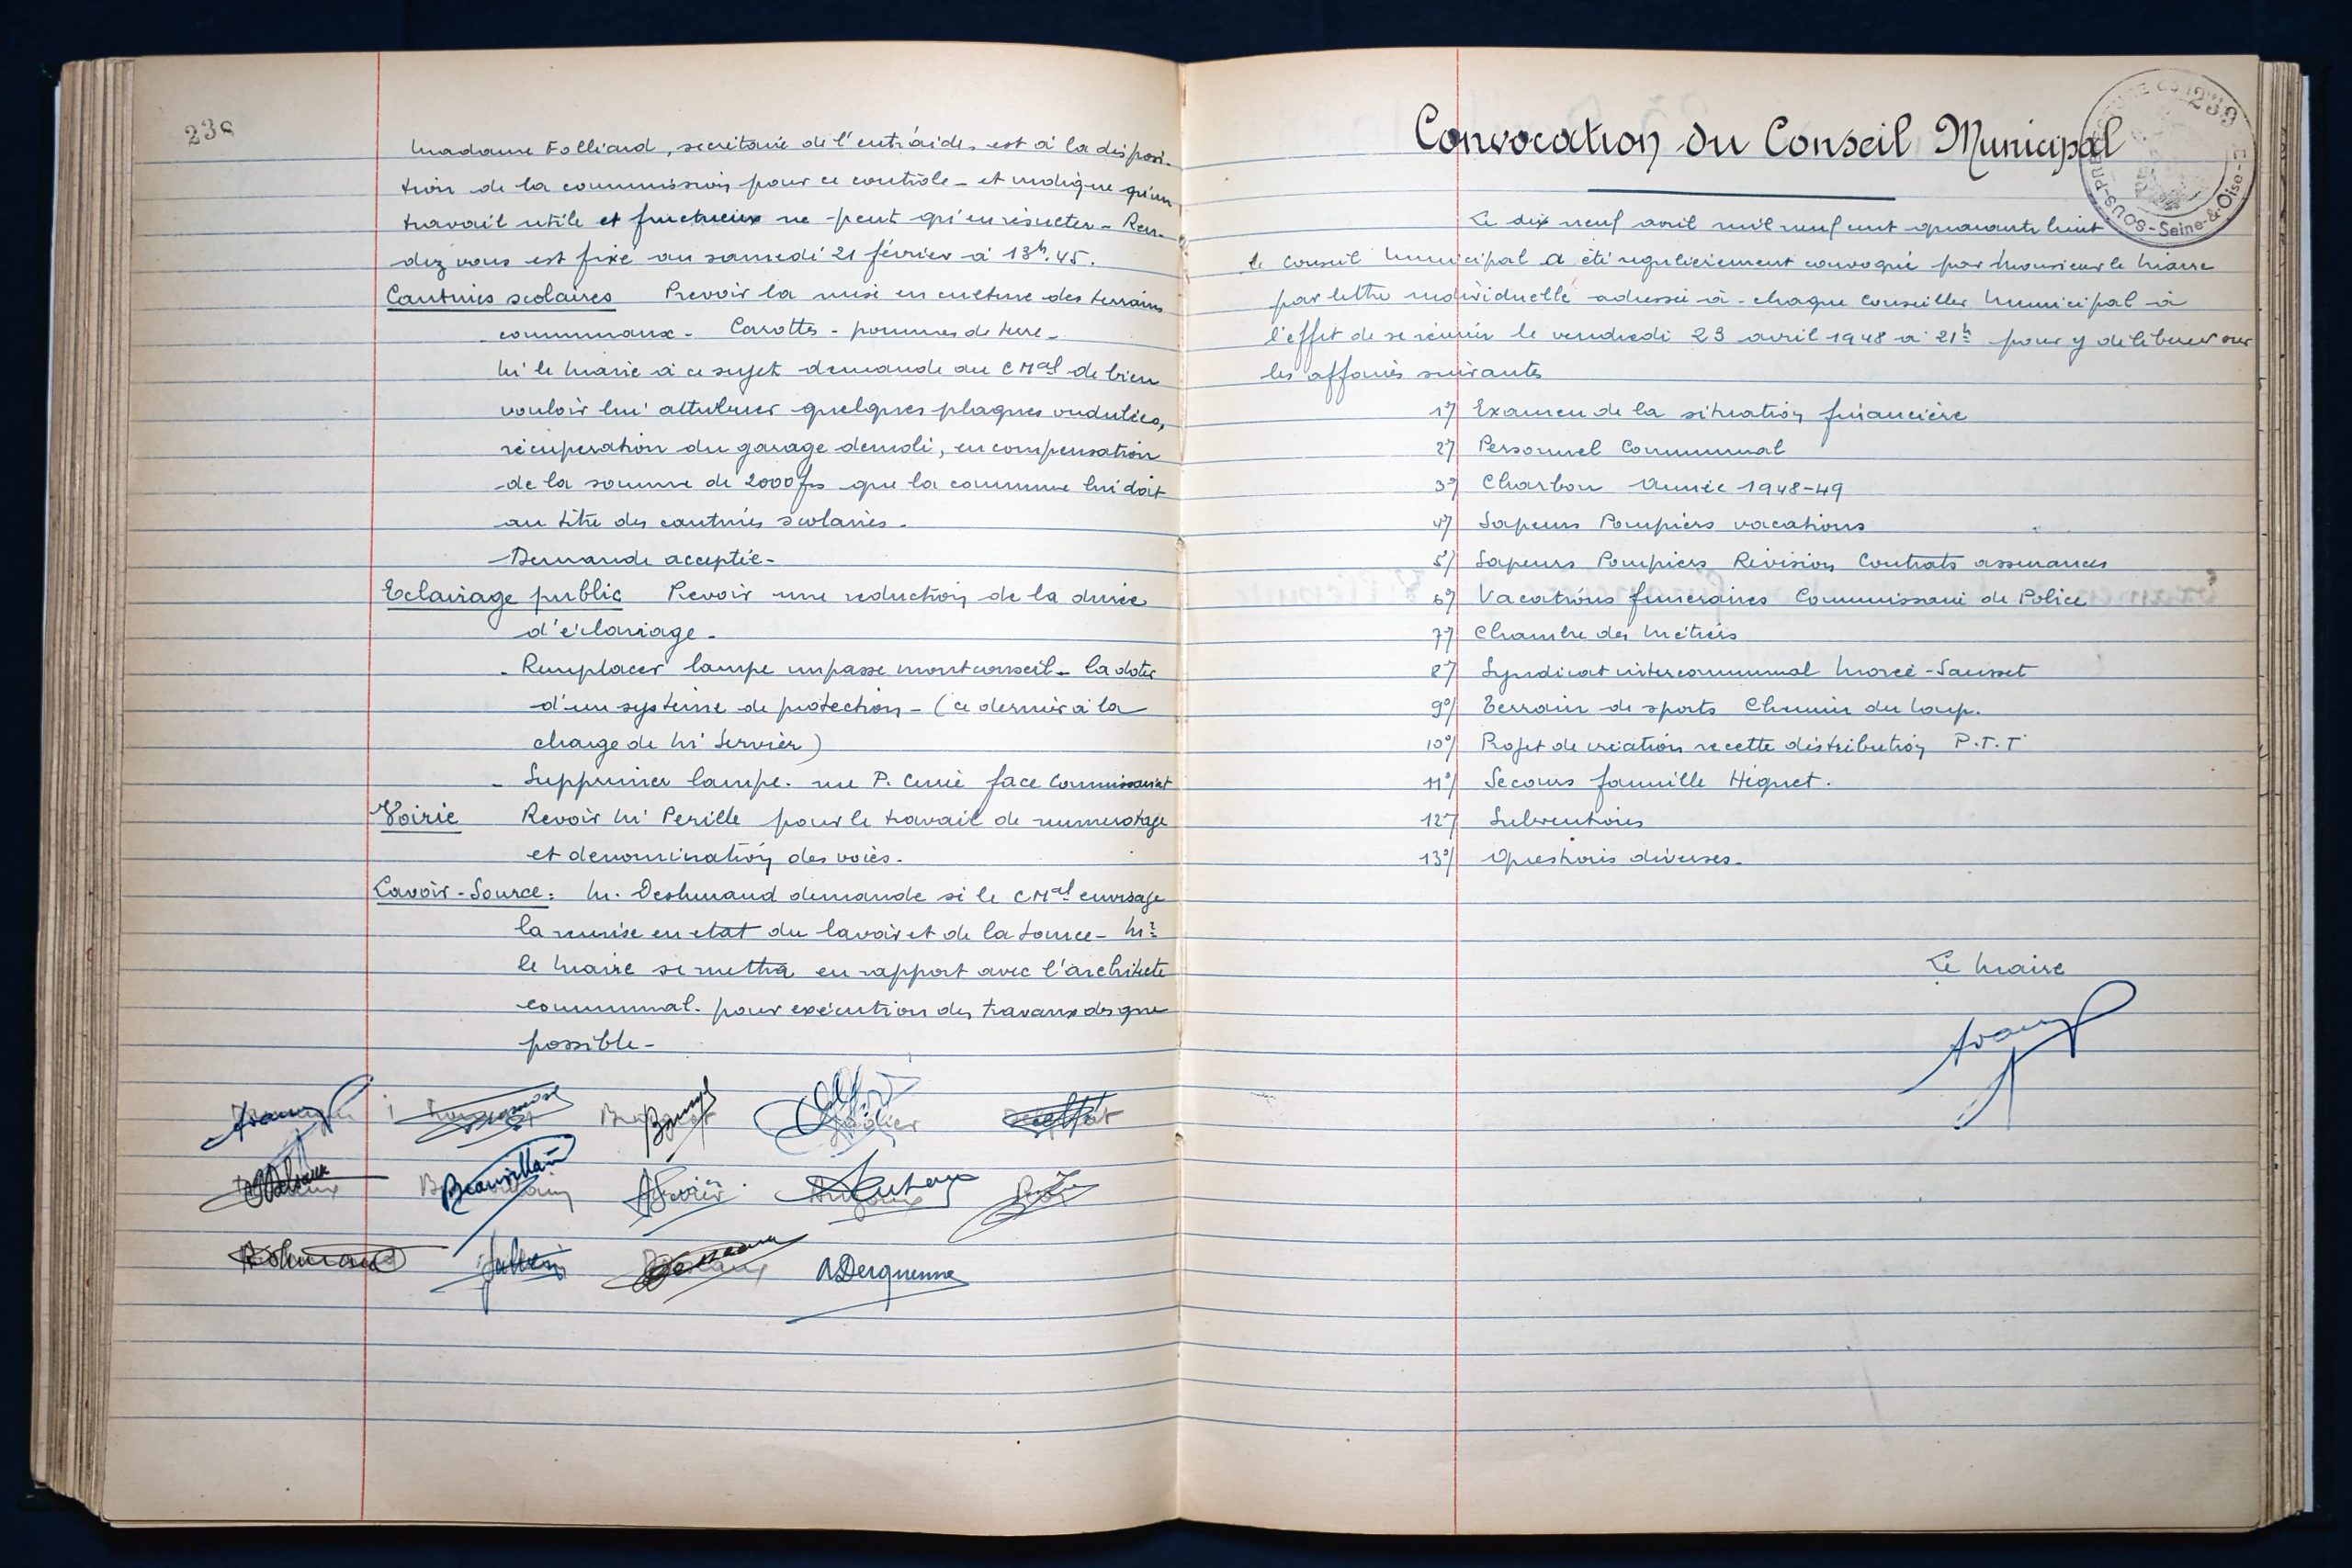 238
Madame Folliard, secrétaire de l'entr'aide, est à la disposi-
tion de la commission pour ce contrôle - et indique qu'un
travail utile et fructueux ne peut qu'en résulter - Ren-
dez vous est fixé au samedi 21 février à 13h.45.
Cantines scolaires Prevoir la mise en culture des terrains
communaux - Carottes - pommes de terre -
Mr le Maire à ce sujet demande au C Mal de bien
vouloir lui attribuer quelques plaques ondulées,
récuperation du garage demoli, en compensation
de la somme de 2000 frs que la commune lui doit
au titre des cantines scolaires -
Demande acceptée -
Eclairage public Prevoir une reduction de la durée
d'éclairage -
- Remplacer lampe impasse montconseil - la doter
d'un système de protection - (ce dernier à la
charge de Mr Servier)
- Supprimer lampe. rue P. Curie face Commissariat
Voirie Revoir Mr Perille pour le travail de numerotage
et denomination des voies -
Lavoir - Source : M. Deshmaud demande si le C Mal envisage
la remise en etat du lavoir et de la source - Mr
le Maire se mettra en rapport avec l'architecte
communal. pour exécution des travaux des que
possible -
Beauvillain
ADerquenne
239
SOUS-PRÉFECTURE
Seine-&-Oise
Convocation du Conseil Municipal
Le dix neuf avril mil neuf cent quarante huit
le Conseil Municipal a été regulierement convoqué par Monsieur le Maire
par lettre individuelle adressée à chaque Conseiller Municipal à
l'effet de se réunir le vendredi 23 avril 1948 à 21h pour y deliberer sur
les affaires suivantes
1°/ Examen de la situation financière
2°/ Personnel Communal
3°/ Charbon Année 1948-49
4°/ Sapeurs Pompiers vacations
5°/ Sapeurs Pompiers Revision Contrats assurances
6°/ Vacations funeraires Commissaire de Police
7°/ Chambre des Métiers
8°/ Syndicat intercommunal Morée - Sausset
9°/ Terrain de sports Chemin du Loup.
10°/ Projet de création recette distribution P.T.T
11°/ Secours famille Hiquet.
12°/ Subventions
13°/ Questions diverses -
Le Maire